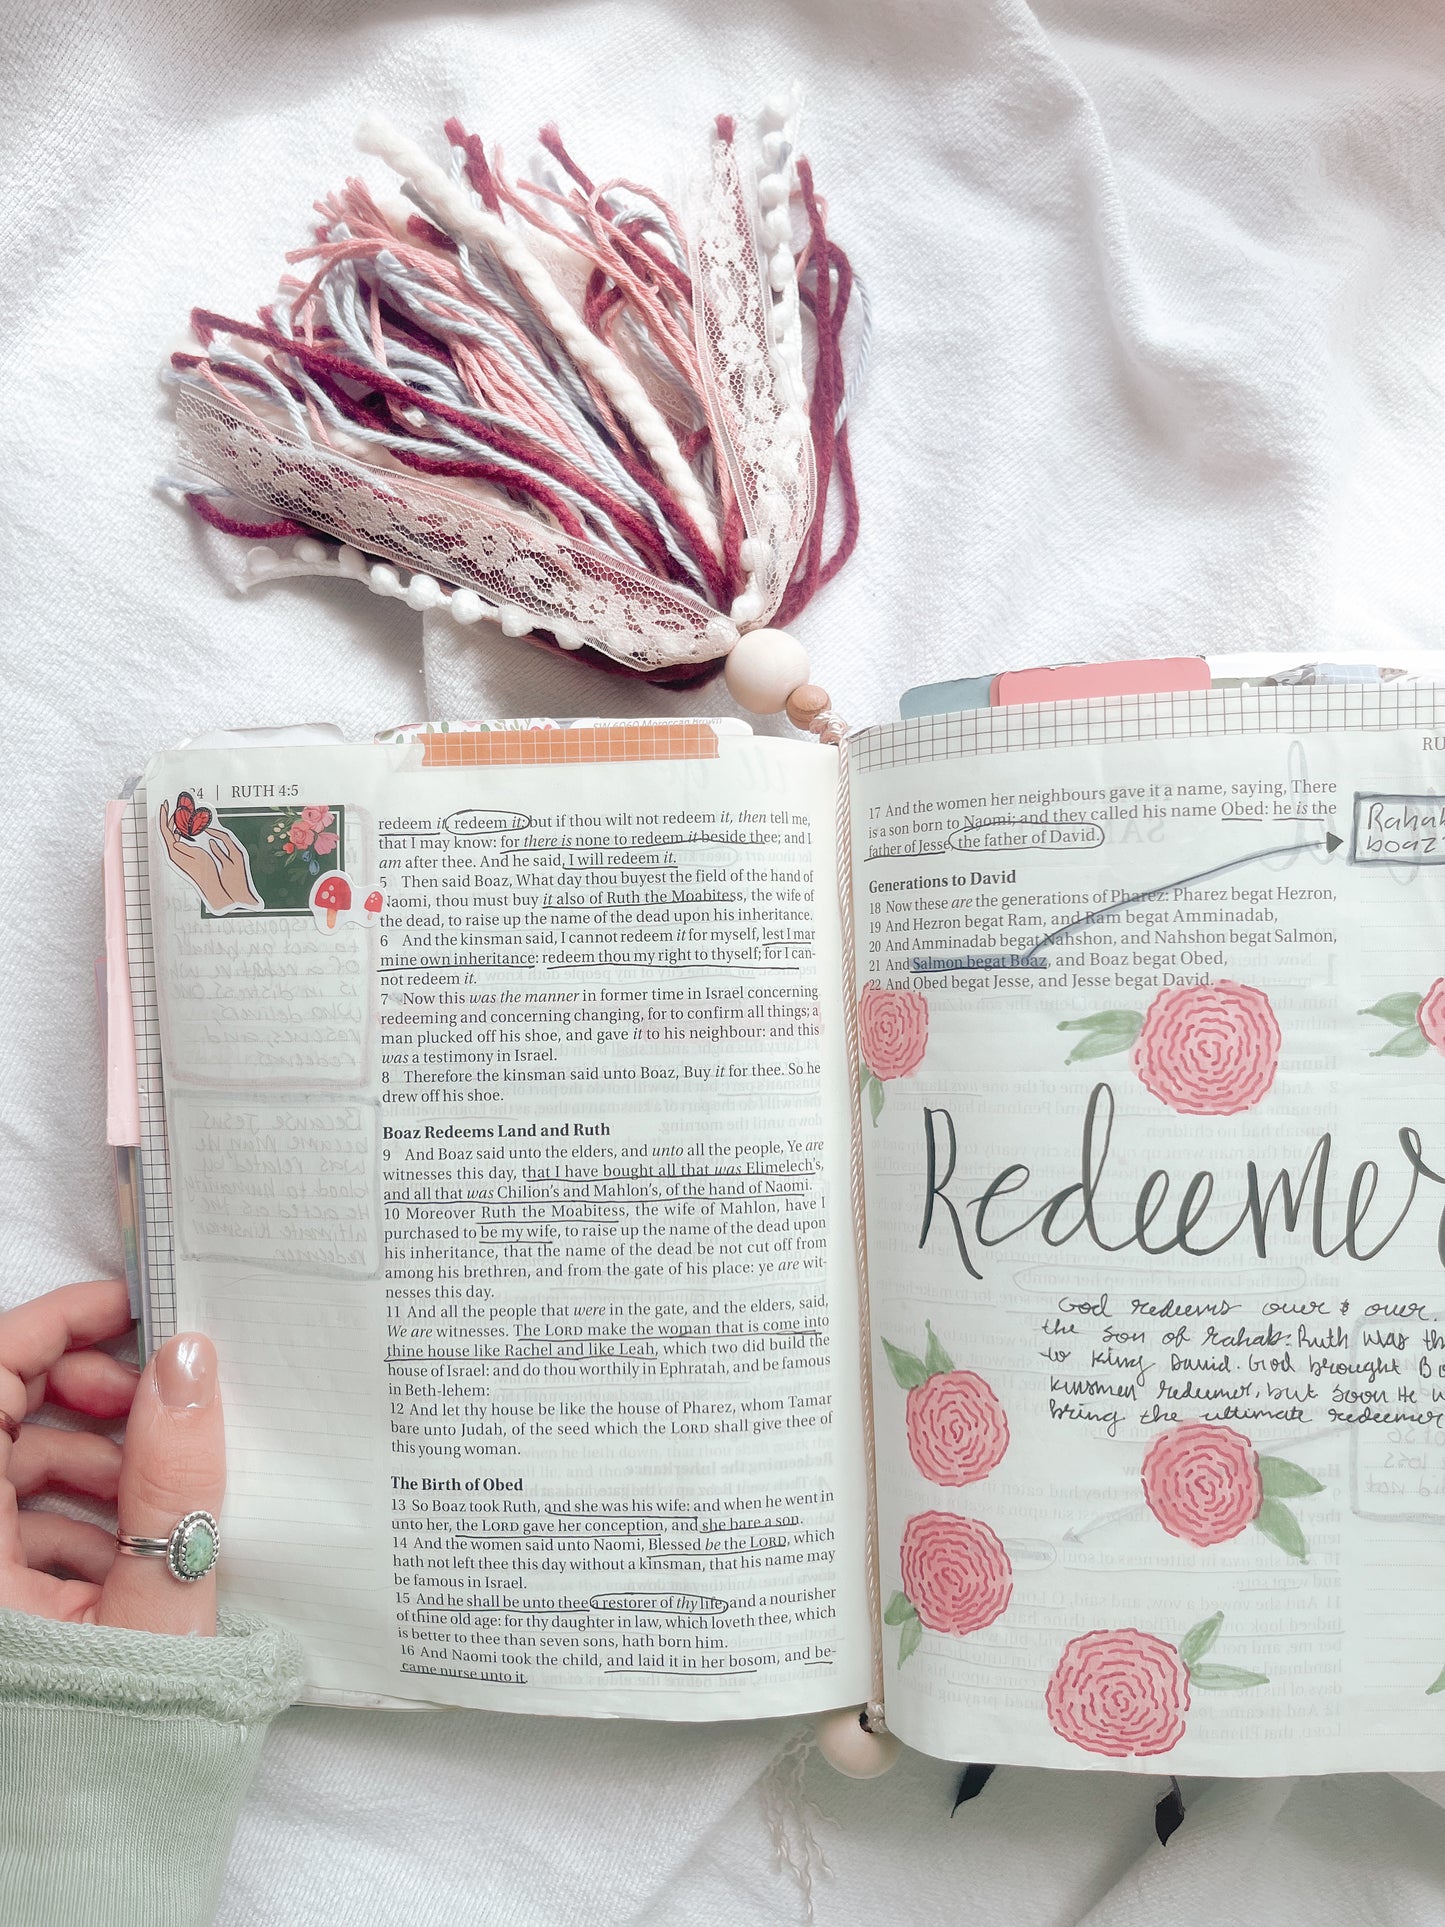 SW 6060 Moroccan Brown
RUTH 4:5
redeem it, redeem it: but if thou wilt not redeem it, then tell me,
that I may know: for there is none to redeem it beside thee; and I
am after thee. And he said, I will redeem it.
5 Then said Boaz, What day thou buyest the field of the hand of
Naomi, thou must buy it also of Ruth the Moabitess, the wife of
the dead, to raise up the name of the dead upon his inheritance.
6 And the kinsman said, I cannot redeem it for myself, lest I mar
mine own inheritance: redeem thou my right to thyself; for I can-
not redeem it.
7 Now this was the manner in former time in Israel concerning
redeeming and concerning changing, for to confirm all things; a
man plucked off his shoe, and gave it to his neighbour: and this
was a testimony in Israel.
8 Therefore the kinsman said unto Boaz, Buy it for thee. So he
drew off his shoe.
Boaz Redeems Land and Ruth
9 And Boaz said unto the elders, and unto all the people, Ye are
witnesses this day, that I have bought all that was Elimelech's,
and all that was Chilion's and Mahlon's, of the hand of Naomi.
10 Moreover Ruth the Moabitess, the wife of Mahlon, have I
purchased to be my wife, to raise up the name of the dead upon
his inheritance, that the name of the dead be not cut off from
among his brethren, and from the gate of his place: ye are wit-
nesses this day.
11 And all the people that were in the gate, and the elders, said,
We are witnesses. The LORD make the woman that is come into
thine house like Rachel and like Leah, which two did build the
house of Israel: and do thou worthily in Ephratah, and be famous
in Beth-lehem:
12 And let thy house be like the house of Pharez, whom Tamar
bare unto Judah, of the seed which the LORD shall give thee of
this young woman.
The Birth of Obed
13 So Boaz took Ruth, and she was his wife: and when he went in
unto her, the LORD gave her conception, and she bare a son.
14 And the women said unto Naomi, Blessed be the LORD, which
hath not left thee this day without a kinsman, that his name may
be famous in Israel.
15 And he shall be unto thee a restorer of thy life, and a nourisher
of thine old age: for thy daughter in law, which loveth thee, which
is better to thee than seven sons, hath born him.
16 And Naomi took the child, and laid it in her bosom, and be-
came nurse unto it.
17 And the women her neighbours gave it a name, saying, There
is a son born to Naomi; and they called his name Obed: he is the
father of Jesse, the father of David.
Generations to David
18 Now these are the generations of Pharez: Pharez begat Hezron,
19 And Hezron begat Ram, and Ram begat Amminadab,
20 And Amminadab begat Nahshon, and Nahshon begat Salmon,
21 And Salmon begat Boaz, and Boaz begat Obed,
22 And Obed begat Jesse, and Jesse begat David.
Rahab
boaz
Redeemer
God redeems over & over.
the son of rahab. Ruth was th
to King David. God brought Bo
kinsmen redeemer, but soon He w
bring the ultimate redeemer